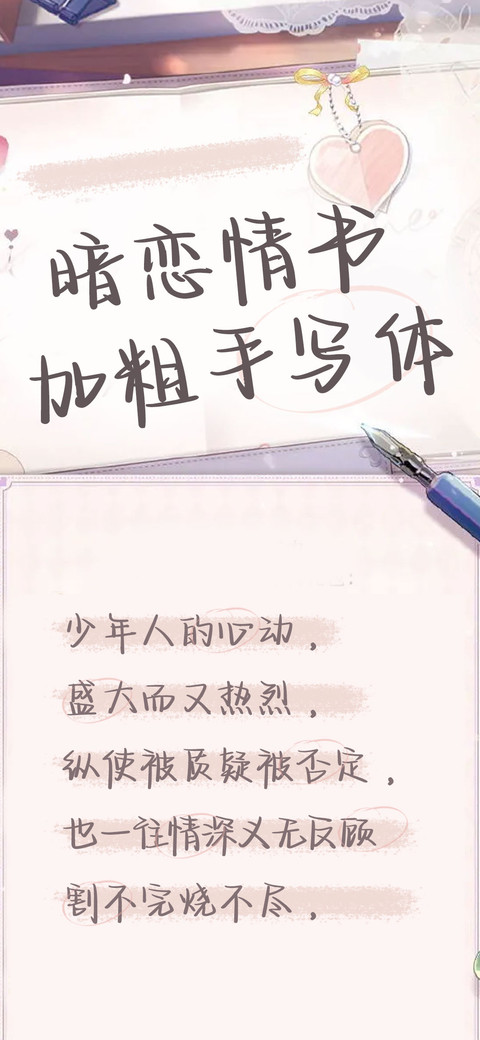 暗恋情书
加粗手写体
少年人的心动，
盛大而又热烈，
纵使被质疑被否定，
也一往情深义无反顾
割不完烧不尽，